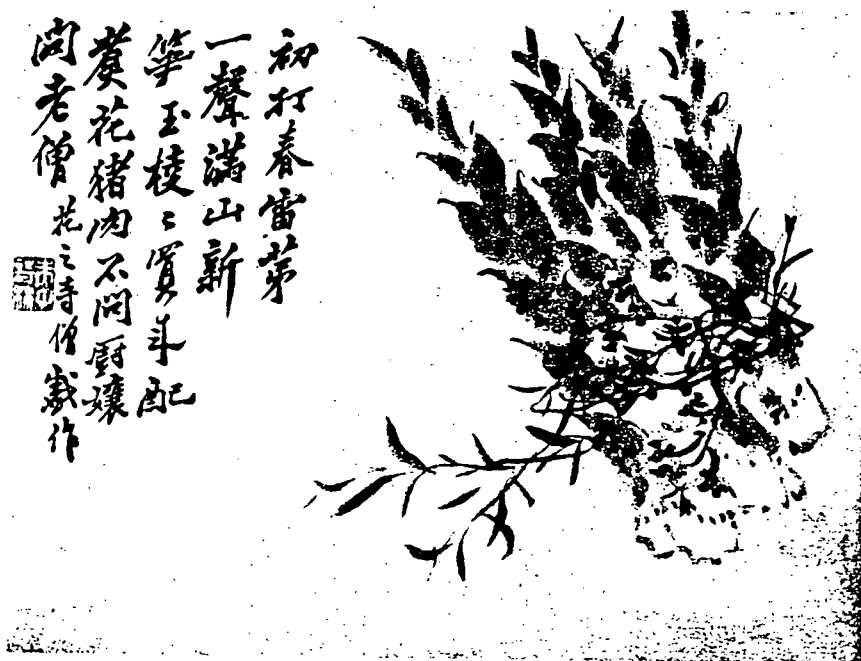 初打春雷苐
一聲滿山新
笋玉棱〻買來配
煑花猪肉不問厨孃
問老僧 花之寺僧戲作